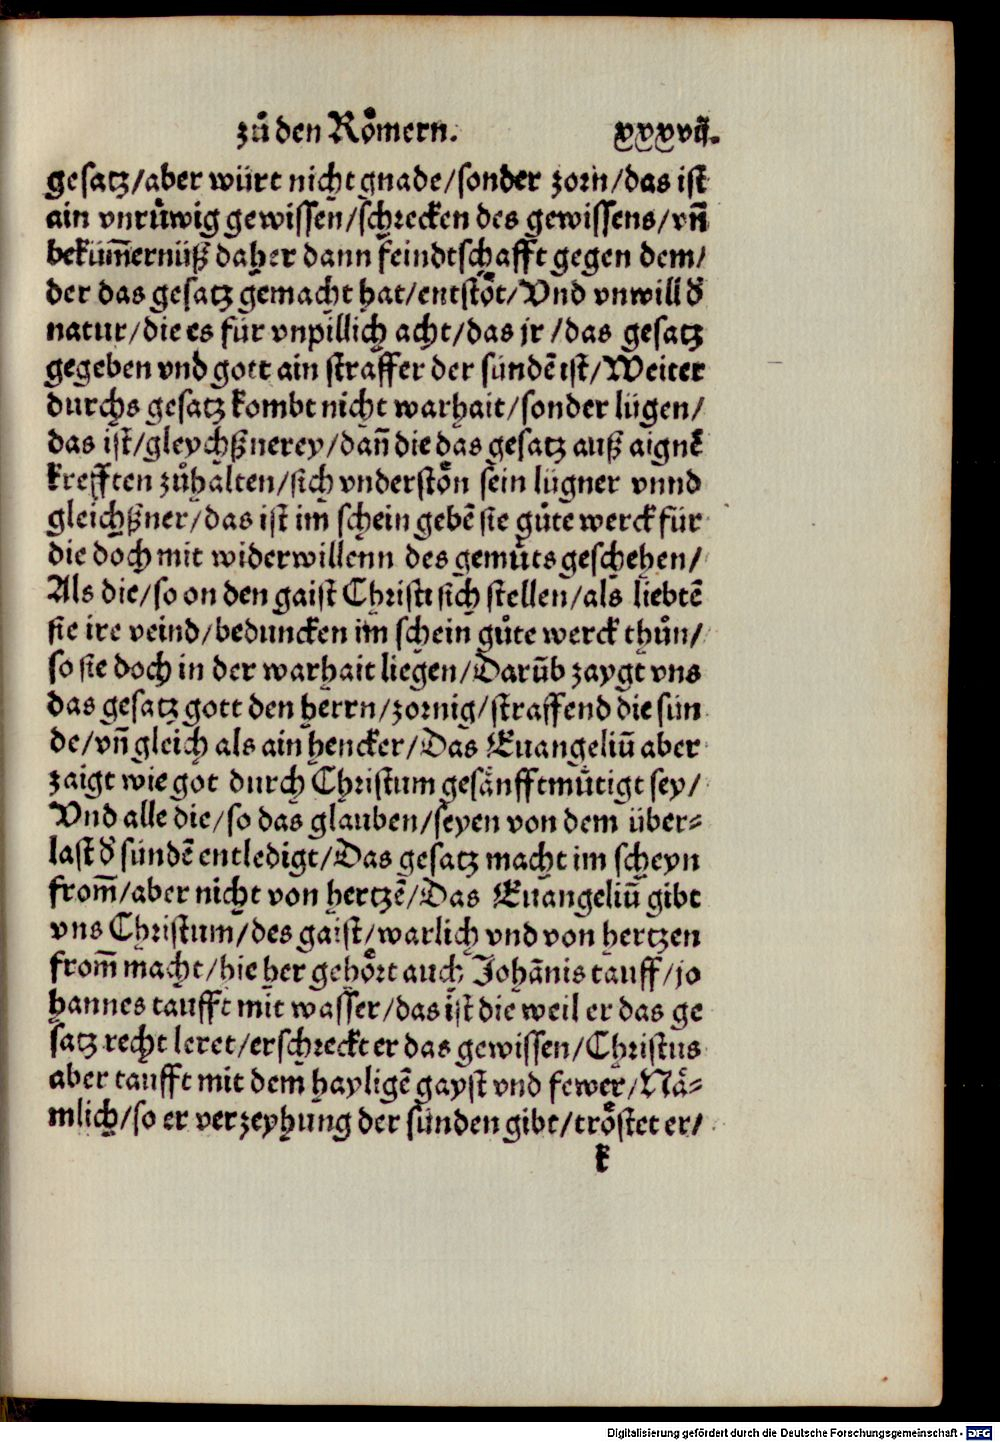 zů den Roͤmern. xxxvij.
gesatz/aber würt nicht gnade/sonder zorn/das ist
ain vnruͤwig gewissen/schrecken des gewissens/vn̄
beküm̄ernüß daher dann feindtschafft gegen dem/
der das gesatz gemacht hat/entstoͤt/Vnd vnwill d͛
natur/die es für vnpillich acht/das jr/das gesatz
gegeben vnd gott ain straffer der sündē ist/Weiter
durchs gesatz kombt nicht warhait/sonder lügen/
das ist/gleychßnerey/dan̄ die das gesatz auß aignē
krefften zůhalten/sich vnderstoͤn sein lügner vnnd
gleichßner/das ist im schein gebē sie gůte werck für
die doch mit widerwillenn des gemuͤts geschehen/
Als die/so on den gaist Christi sich stellen/als liebtē
sie ire veind/beduncken im schein gůte werck thůn/
so sie doch in der warhait liegen/Darūb zaygt vns
das gesatz gott den herrn/zornig/straffend die sün
de/vn̄ gleich als ain hencker/Das Euangeliū aber
zaigt wie got durch Christum gesänfftmuͤtigt sey/
Vnd alle die/so das glauben/seyen von dem über⸗
last d͛ sündē entledigt/Das gesatz macht im scheyn
from̄/aber nicht von hertzē/Das Euangeliū gibt
vns Christum/des gaist/warlich vnd von hertzen
from̄ macht/hie her gehoͤrt auch Johānis tauff/jo
hannes taufft mit wasser/das ist die weil er das ge
satz recht leret/erschreckt er das gewissen/Christus
aber taufft mit dem hayligē gayst vnd fewer/Nä⸗
mlich/so er verzeyhung der sünden gibt/troͤstet er/
k
Digitalisierung gefördert durch die Deutsche Forschungsgemeinschaft - DFG